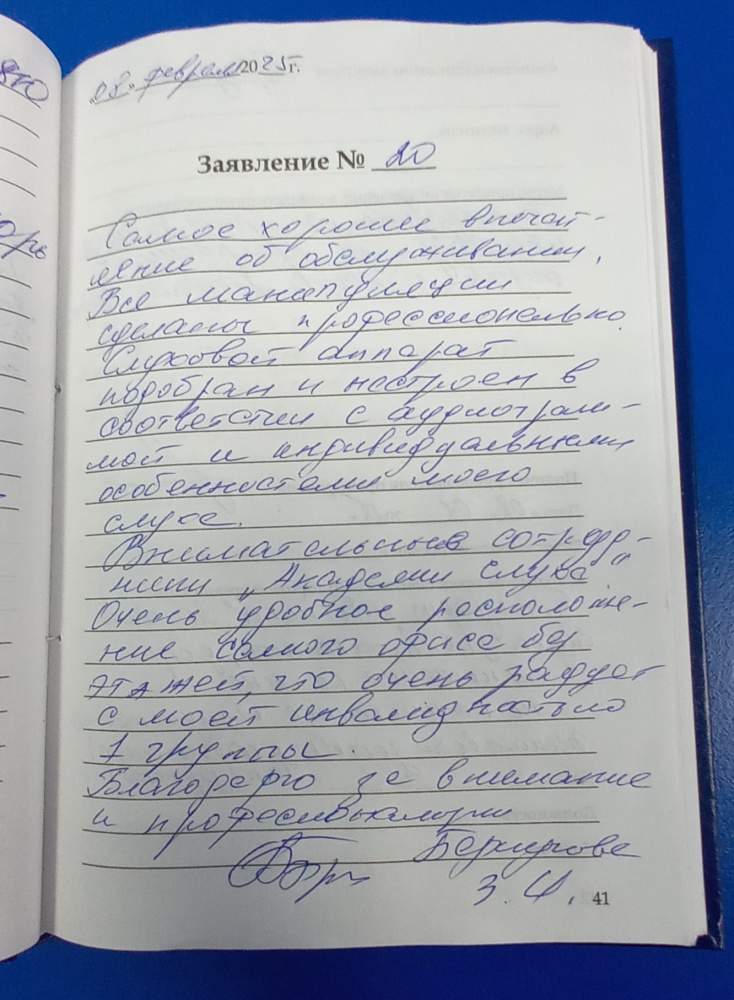 „08“ февраля 2025г.
Заявление № 20
Самое хорошее впечат-
ление об обслуживании.
Все манипуляции
сделаны профессионально.
Слуховой аппарат
подобран и настроен в
соответстии с аудиограм-
мой и индивидуальными
особенностями моего
слуха.
Внимательные сотруд-
ники „Академии слуха"
Очень удобное расположе-
ние самого офиса без
этажей, что очень радует
с моей инвалидностью
1 группы.
Благодарю за внимание
и
З.И.
41